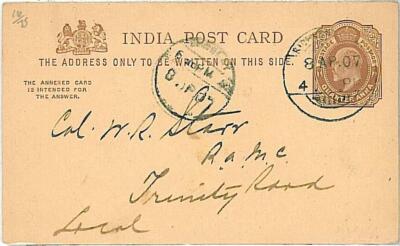 INDIA POST CARD
THE ADDRESS ONLY TO BE WRITTEN ON THIS SIDE.
THE ANNEXED CARD
IS INTENDED FOR
THE ANSWER.
8 AP. 07
4
Col. W. R. Starr
R.A.M.C.
Trinity Road
Local